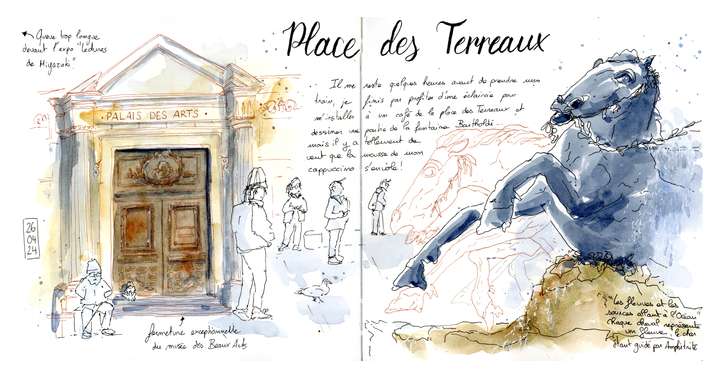 Queue trop longue
devant l'expo "lectures
de Miyazaki"
Place des Terreaux
Il me reste quelques heures avant de prendre mon
train, je finis par profiter d'une éclaircie pour
m'installer à un café de la place des Terreaux et
dessiner une partie de la fontaine Bartholdi
mais il y a tellement de
vent que la mousse de mon
cappuccino s'envole!
PALAIS DES ARTS
26
04
24
fermeture exceptionnelle
du musée des Beaux Arts
"les fleuves et les
sources allant à l'Océan"
chaque cheval représente
un fleuve, le char
étant guidé par Amphitrite